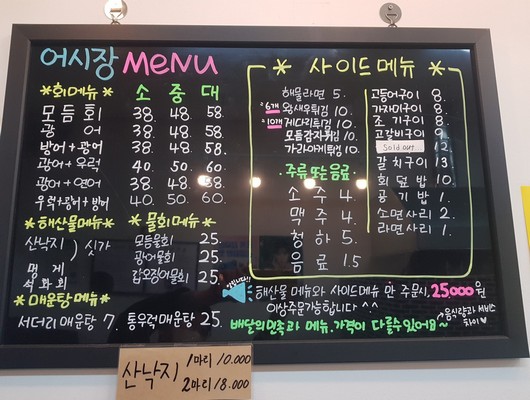 어시장 MENU
*회메뉴* 소 중 대
모듬회 38. 48. 58.
광 어 38. 48. 58.
방어+광어 38. 48. 58.
광어+우럭 40. 50. 60.
광어+연어 38. 48. 58.
우럭+광어+방어 40. 50. 60.
*해산물메뉴*
산낙지 ) 싯가
멍게
석화회
*매운탕메뉴*
서더리매운탕 7. 통우럭매운탕 25.
*물회메뉴*
모듬물회 25.
광어물회 25.
갑오징어물회 25.
* 사이드메뉴 *
해물라면 5.
*6개 왕새우튀김 10.
*10개 게다리튀김 10.
모듬감자튀김 10.
가라아게튀김 10.
주류 또는 음료
소 주 4.
맥 주 4.
청 하 5.
음 료 1.5
고등어구이 8.
가자미구이 8.
조 기구이 8.
고갈비구이 9.
Sold out 12.
갈 치구이 13.
회 덮 밥 10.
공 기 밥 1.
소면사리 2.
라면사리 1.
해산물 메뉴와 사이드메뉴 만 주문시, 25,000원
이상주문가능합니다 ^^
배달의민족과 메뉴, 가격이 다를수있어요~
산낙지 1마리 10.000
2마리 18.000